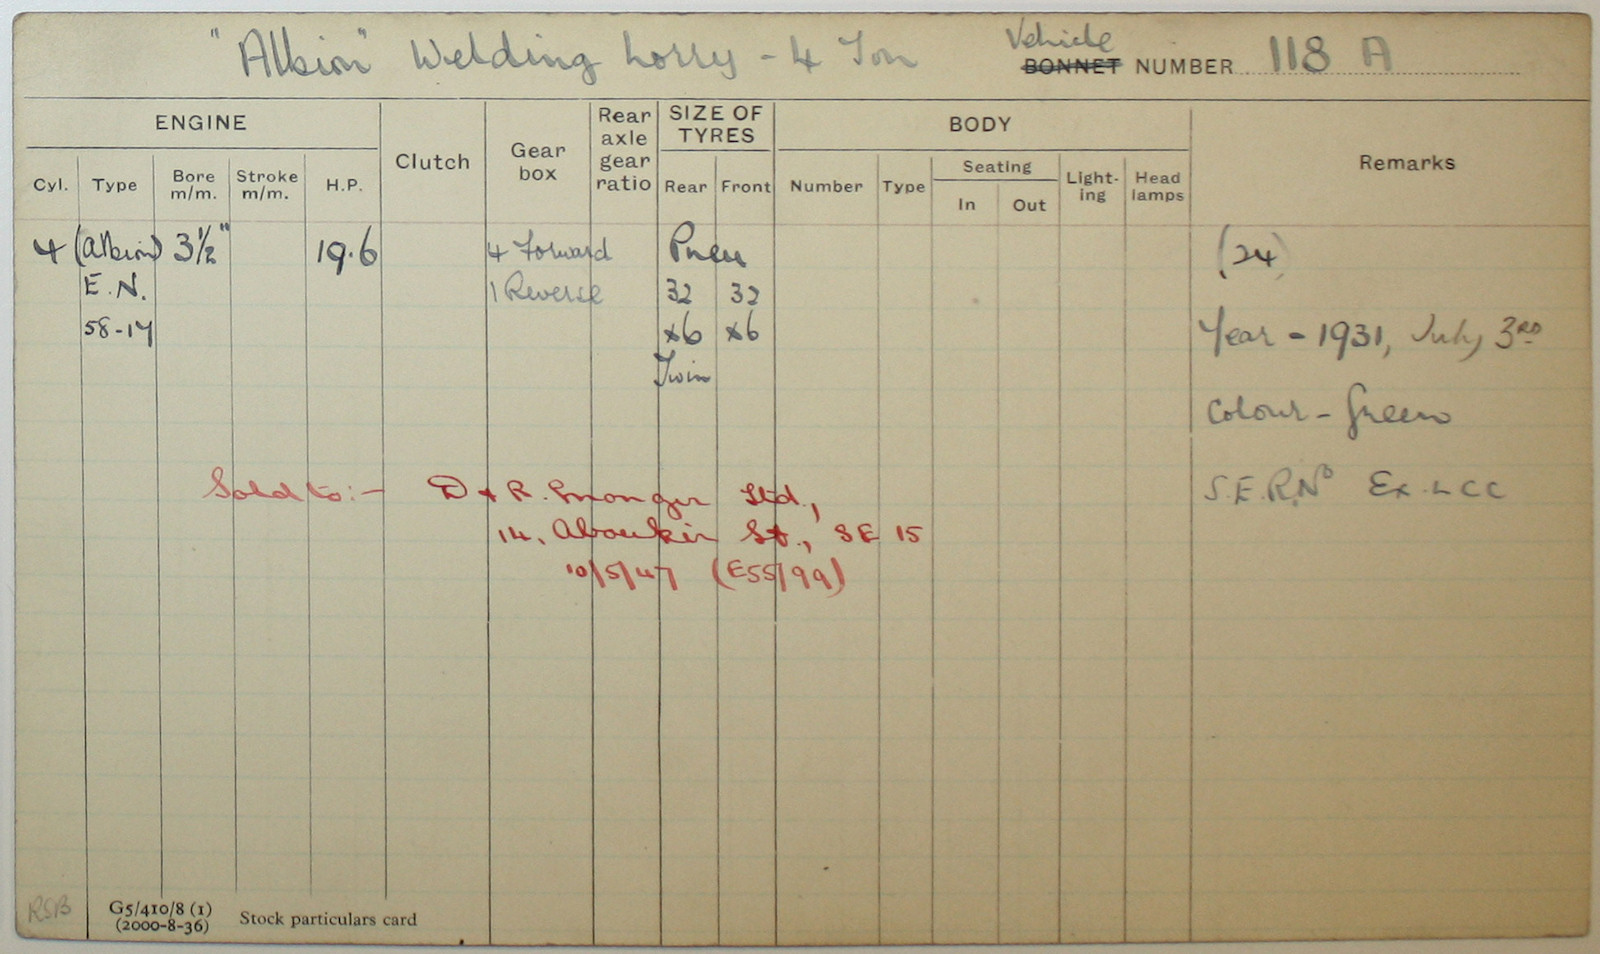 "Albion" Welding Lorry - 4 Ton
Vehicle
BONNET NUMBER 118 A
ENGINE
Clutch
Gear box
Rear axle gear ratio
SIZE OF TYRES
BODY
Remarks
Cyl. Type Bore m/m. Stroke m/m. H.P.
Rear Front
Number Type
Seating
In Out
Light-ing
Head lamps
4 (Albion) 3½" 19.6 4 Forward Pneu (24)
E.N. 1 Reverse 32 32
58-14 x6 x6 Year - 1931, July 3RD
Twin
Colour - Green
Sold to:- D & R. Ltd., S.E.R.No Ex. LCC
14, Aboukir St., SE 15
10/5/47 (E55/99)
RSB
G5/410/8 (1)
(2000-8-36)
Stock particulars card